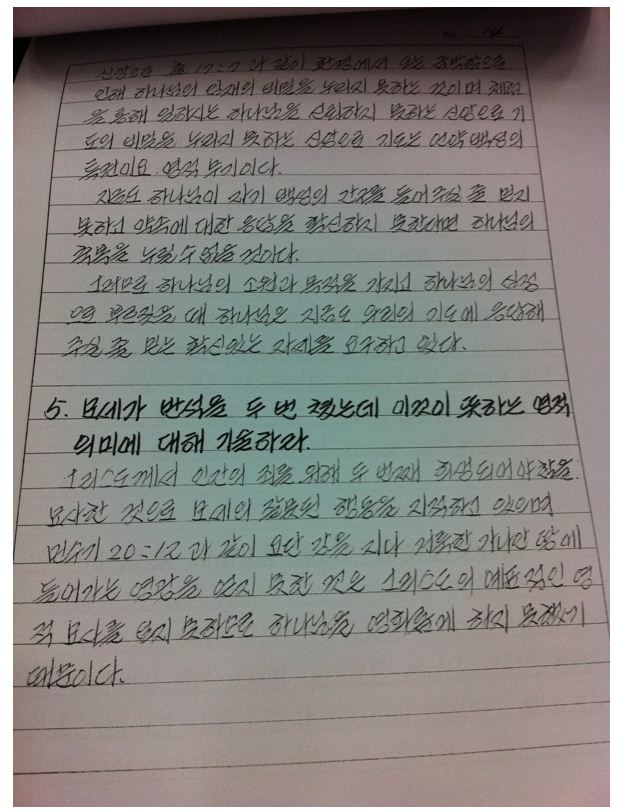 No. 14
신앙으로 출 17:7 과 같이 환경에서 오는 압박감으로
인해 하나님의 임재의 비밀을 누리지 못하는 것이며 체험
을 통해 일하시는 하나님을 신뢰하지 못하는 신앙으로 기
도의 비밀을 누리지 못하는 신앙으로 기도는 언약 백성의
특권이요 영적 무기이다.
지금도 하나님이 자기 백성의 간구를 들어주실 줄 믿지
못하고 약속에 대한 응답을 확신하지 못한다면 하나님의
축복을 누릴 수 없을 것이다.
그러므로 하나님의 소원과 목적을 가지고 하나님의 심정
으로 부르짖을 때 하나님은 지금도 우리의 기도에 응답해
주실 줄 믿는 확신있는 자세를 요구하고 있다.
5. 모세가 반석을 두 번 쳤는데 이것이 뜻하는 영적
의미에 대해 기술하라.
그리스도께서 인간의 죄를 위해 두 번째 희생되어야 함을
묘사한 것으로 모세의 잘못된 행동을 지적하고 있으며
민수기 20:12 과 같이 요단 강을 지나 거룩한 가나안 땅에
들어가는 영광을 얻지 못한 것은 그리스도의 예표적인 영
적 묘사를 하지 못하므로 하나님을 영화롭게 하지 못했기
때문이다.